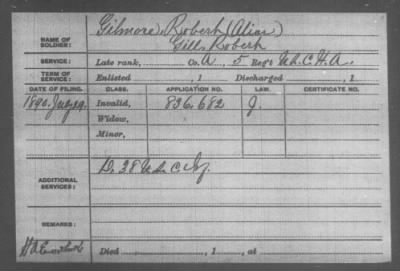 NAME OF SOLDIER: Gilmore, Robert (Alias)
Gills Robert
SERVICE: Late rank, Co. A, 5 Regt U.S.C.H.A.
TERM OF SERVICE: Enlisted , 1 Discharged , 1
DATE OF FILING. CLASS. APPLICATION NO. LAW. CERTIFICATE NO.
1890, July 29 Invalid, 836.682 J.
Widow,
Minor,
ADDITIONAL SERVICES: D. 38 U.S.C. Inf.
REMARKS:
Died , 1 , at